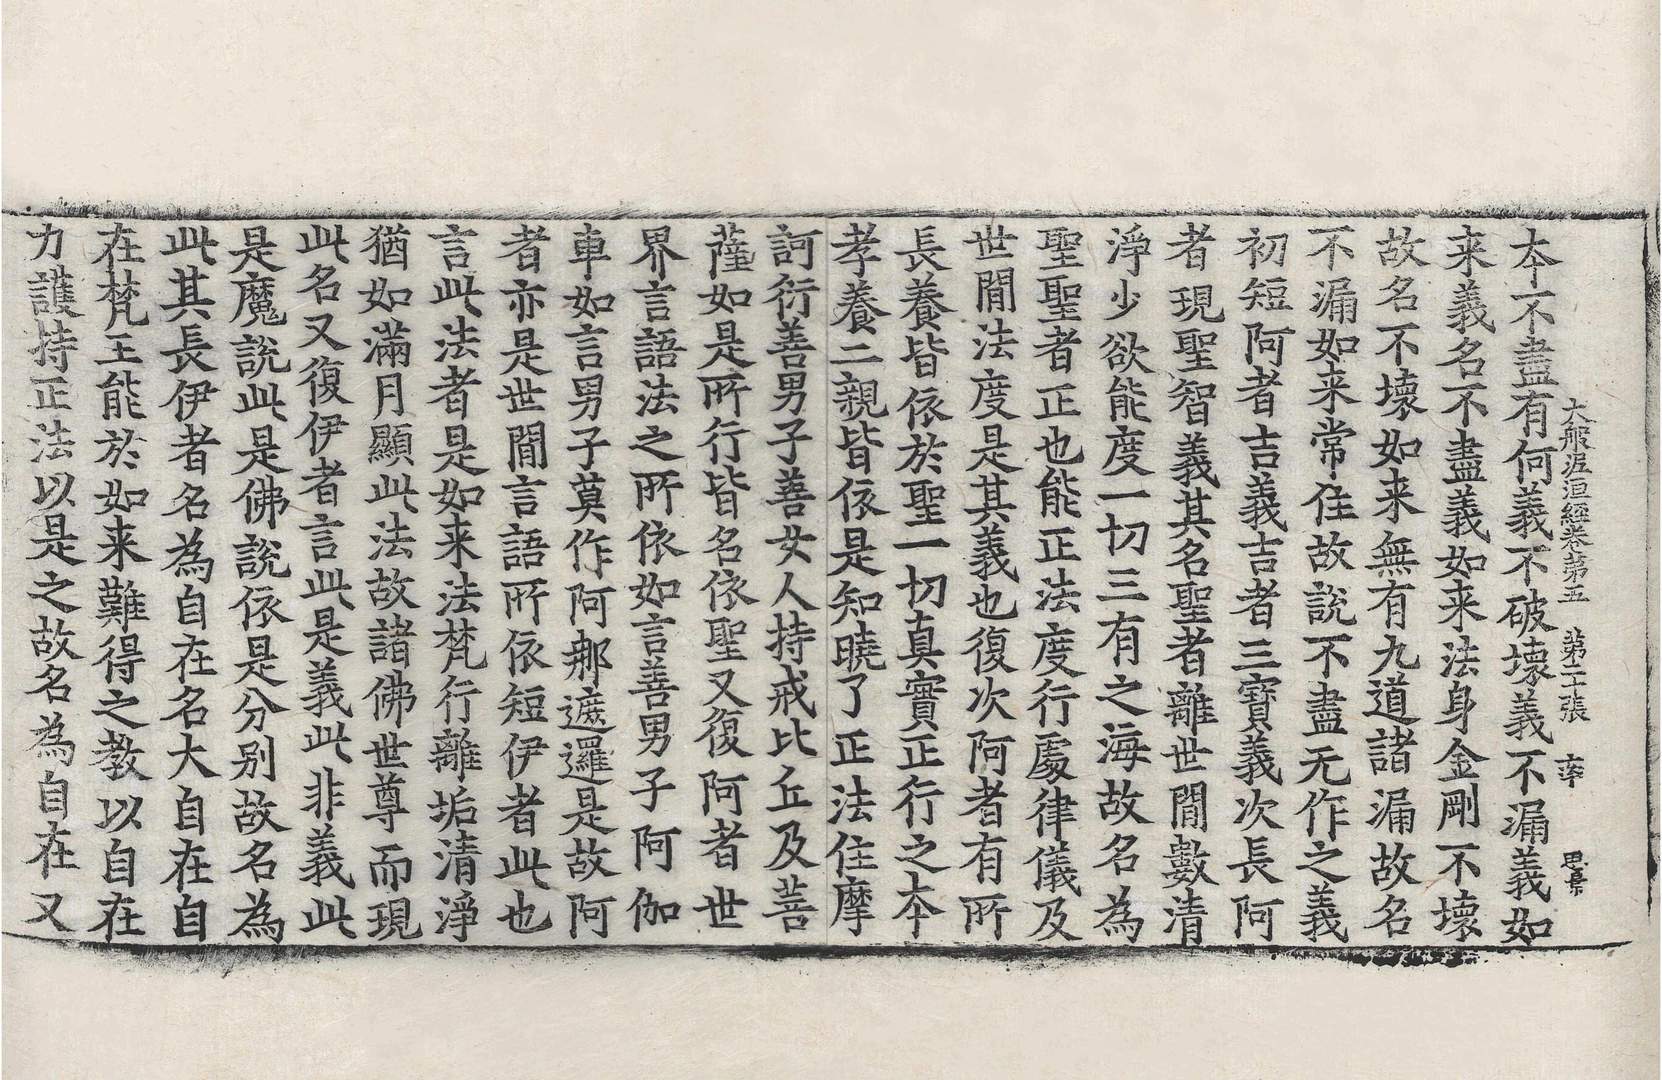 大般泥洹經卷第五 第二十張 率 思集
本不盡有何義不破壞義不漏義如
来義名不盡義如来法身金剛不壞
故名不壞如来無有九道諸漏故名
不漏如来常住故説不盡无作之義
初短阿者吉義吉者三寶義次長阿
者現聖智義其名聖者離世間數清
淨少欲能度一切三有之海故名為
聖聖者正也能正法度行處律儀及
世間法度是其義也復次阿者有所
長養皆依於聖一切真實正行之本
孝養二親皆依是知曉了正法住摩
訶衍善男子善女人持戒比丘及菩
薩如是所行皆名依聖又復阿者世
界言語法之所依如言善男子阿伽
車如言男子莫作阿那遮邏是故阿
者亦是世間言語所依短伊者此也
言此法者是如来法梵行離垢清淨
猶如滿月顯此法故諸佛世尊而現
此名又復伊者言此是義此非義此
是魔説此是佛説依是分别故名為
此其長伊者名為自在名大自在自
在梵王能於如来難得之教以自在
力護持正法以是之故名為自在又